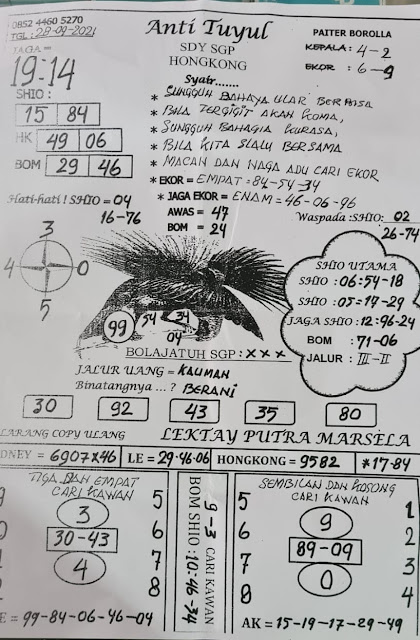 0852 4460 5270
TGL: 28-09-2021
Anti Tuyul
SDY SGP
HONGKONG
PAITER BOROLLA
KEPALA: 4-2
EKOR : 6-9
JAGA=
19-14
SHIO:
15 84
HK 49 06
BOM 29 46
Syair.......
* SUNGGUH BAHAYA ULAR BERBISA
* BILA TERGIGIT AKAN KOMA,
* SUNGGUH BAHAGIA KURASA,
* BILA KITA SLALU BERSAMA
* MACAN DAN NAGA ADU CARI EKOR
* EKOR = EMPAT = 84-54-34
* JAGA EKOR = ENAM = 46-06-96
Hati-hati ! SHIO = 04
16-76
AWAS = 47
BOM = 24
Waspada :SHIO: 02
26-74
3
4 0
5
99
54 34
04
SHIO UTAMA
SHIO : 06:54-18
SHIO : 05=17-29
JAGA SHIO : 12=96-24
BOM : 71-06
JALUR : III-II
BOLAJATUH SGP : X X X
JALUR UANG = KAUMAN
Binatangnya ...? BERANI
30 92 43 35 80
LARANG COPY ULANG LEKTAY PUTRA MARSELA
DNEY = 6907X46 LE = 29-46-06 HONGKONG = 9582 *17-84
TIGA DAN EMPAT
CARI KAWAN
3
30-43
4
5
6
7
8
E = 99-84-06-46-04
9-3 CARI KAWAN
BOM SHIO : 10:46-34
SEMBILAN DAN KOSONG
CARI KAWAN
5
6
7
8
9
89-09
0
1
2
3
4
AK = 15-19-17-29-49